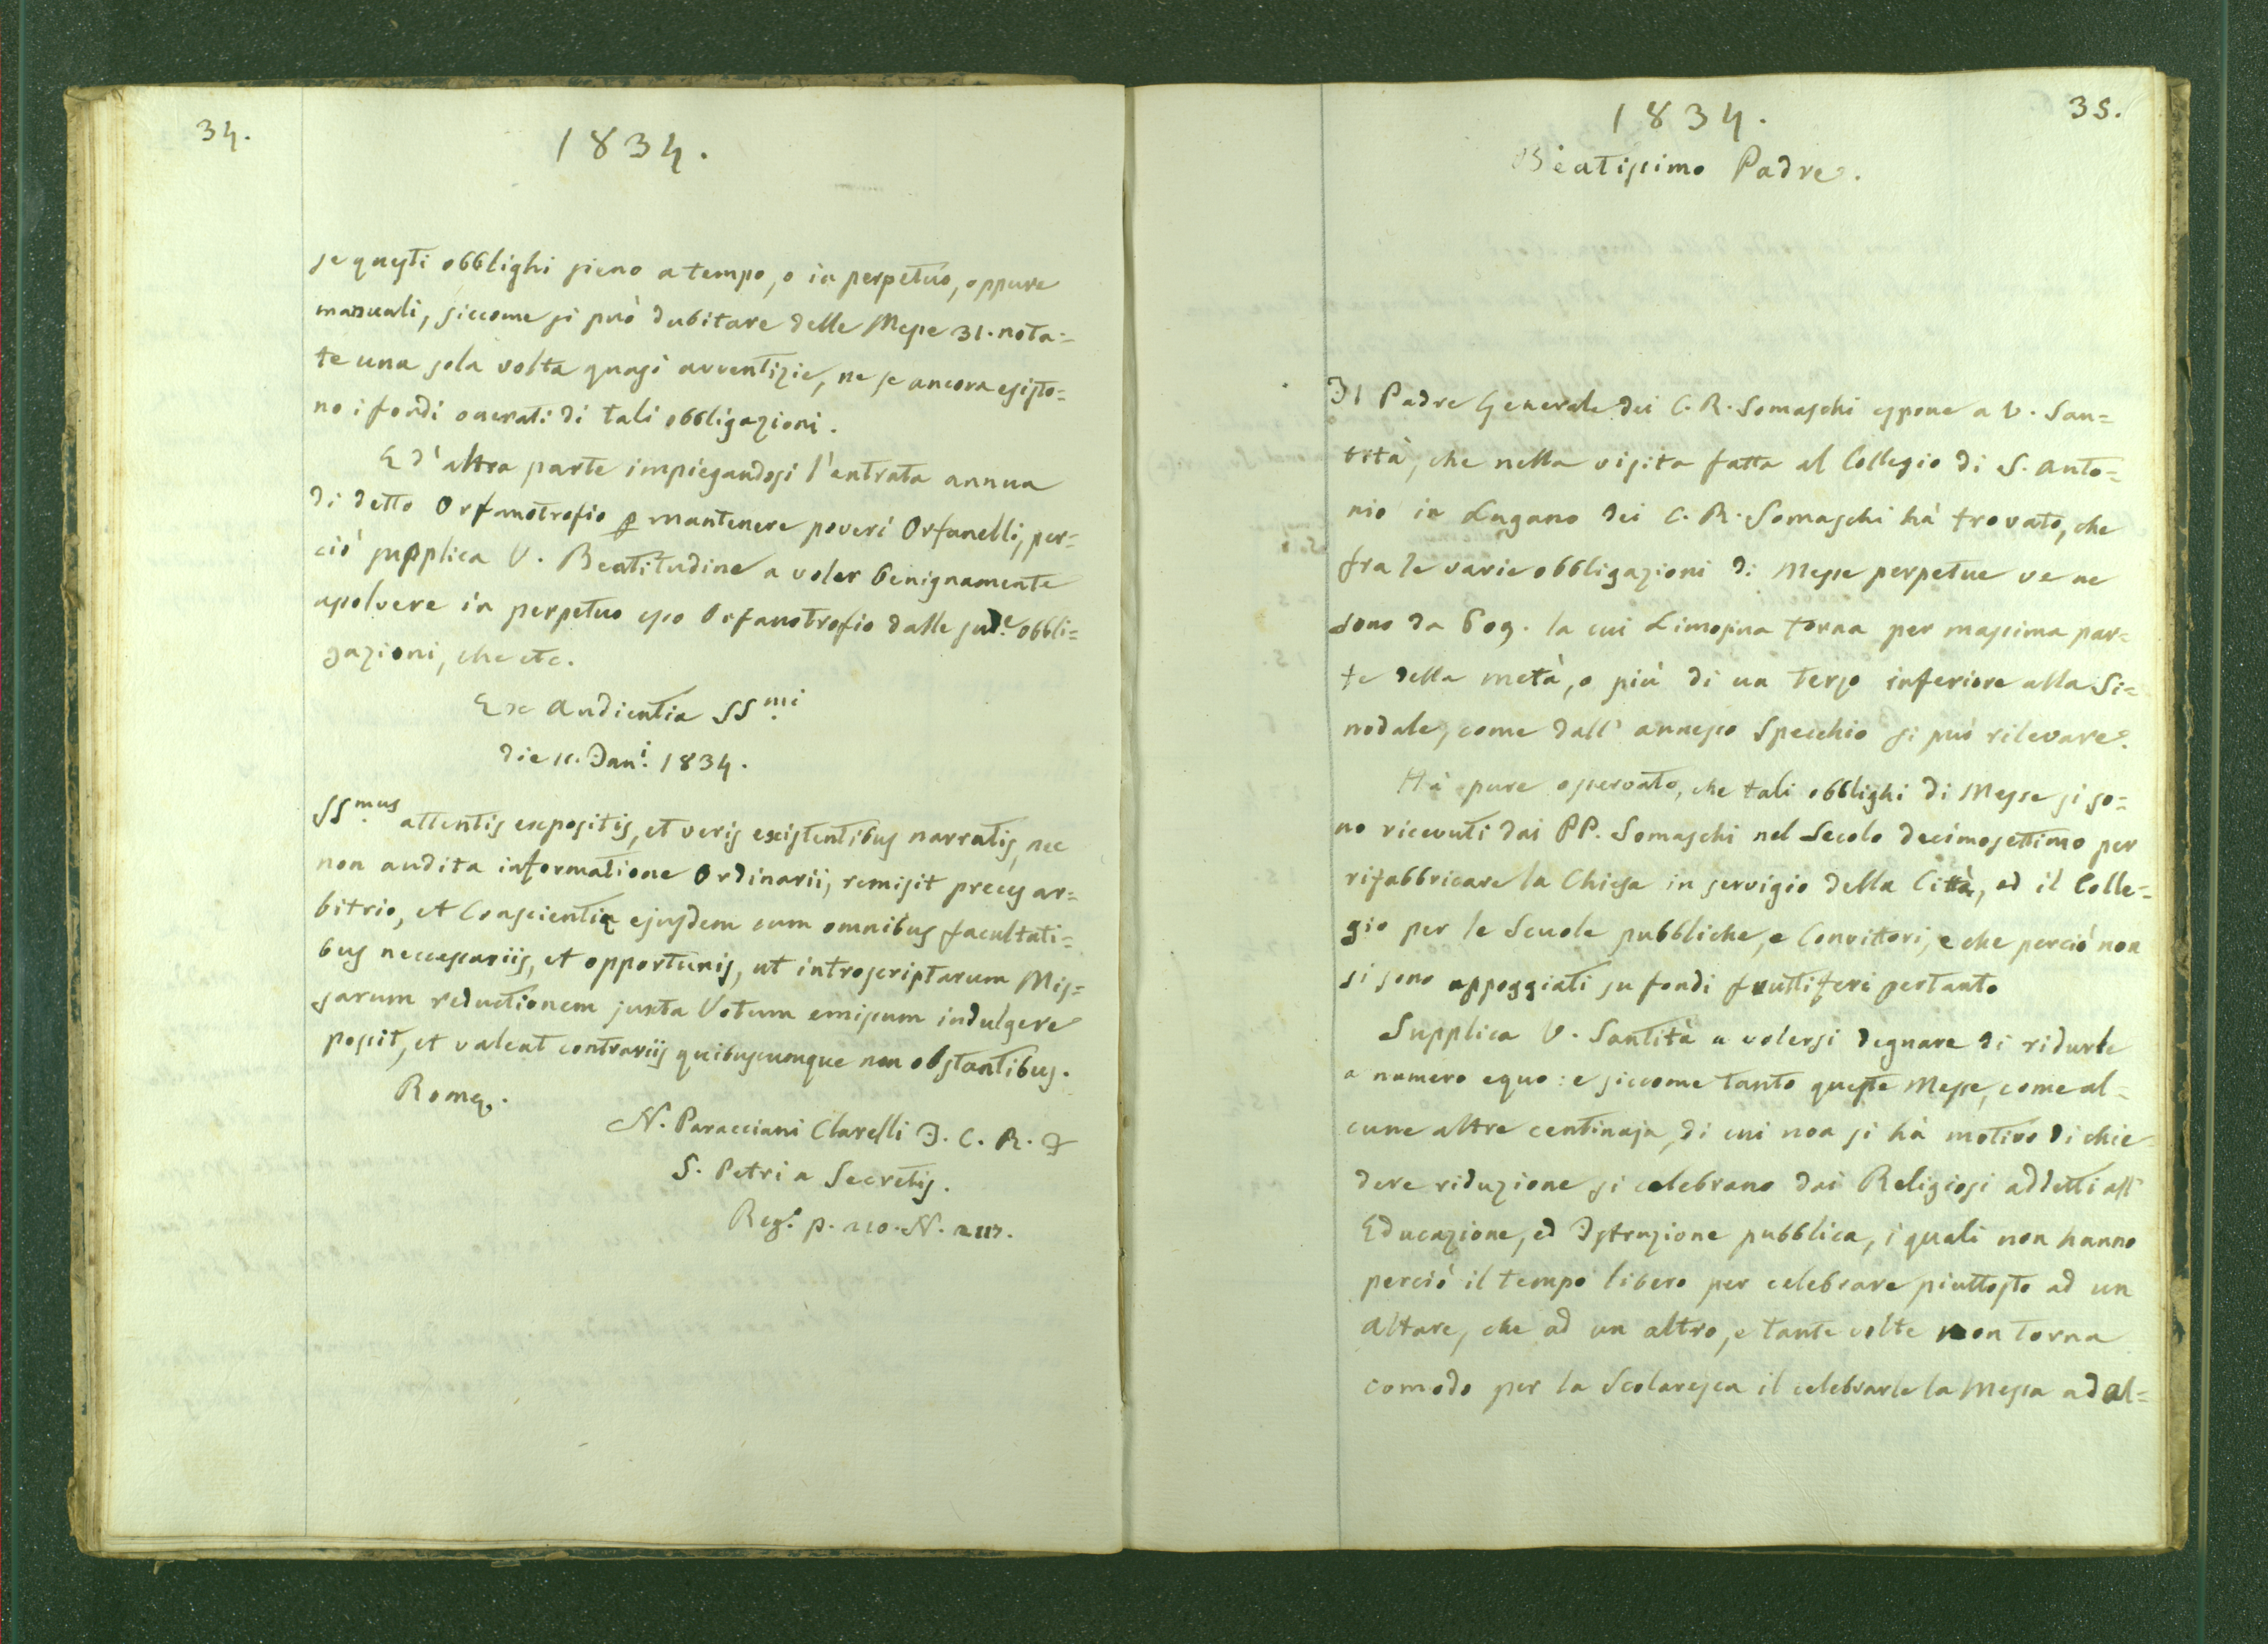 34.
1834.
se questi obblighi sieno a tempo, o in perpetuo, oppure
manuali, siccome si può dubitare delle Messe 31. nota=
te una sola volta quasi avventizie, ne se ancora esisto=
no i fondi onerati di tali obbligazioni.
E d'altra parte impiegandosi l'entrata annua
di detto Orfanotrofio p mantenere poveri Orfanelli, per=
ciò supplica V. Beatitudine a voler benignamente
assolvere in perpetuo esso Orfanotrofio dalle sud.e obbli=
gazioni, che etc.
Ex Audientia SS.mi
die 11. Jan.i 1834.
SS.mus attentis expositis, et veris existentibus narratis, nec
non audita informatione Ordinarii, remisit preces ar=
bitrio, et Conscientiæ ejusdem cum omnibus facultati=
bus neccessariis, et opportunis, ut introscriptarum Mis=
sarum reductionem juxta Votum emissum indulgere
possit, et valeat contrariis quibuscumque non obstantibus.
Romæ.
N. Paracciani Clarelli J. C. R. F
S. Petri a Secretis.
Reg.
35.
1834.
Beatissimo Padre.
Il Padre Generale dei C. R. Somaschi espone a V. San=
tità, che nella visita fatta al Collegio di S. Anto=
nio in Lugano dei C. R. Somaschi hà trovato, che
fra le varie obbligazioni di Messe perpetue ve ne
sono da 609. la cui Limosina torna per massima par=
te della metà, o più di un terzo inferiore alla Si=
nodale, come dall' annesso Specchio si può rilevare.
Hà pure osservato, che tali obblighi di Messe si so=
no ricevuti dai PP. Somaschi nel Secolo decimosettimo per
rifabbricare la Chiesa in servigio della Città, ed il Colle=
gio per le Scuole pubbliche, e Convittori, e che perciò non
si sono appoggiati su fondi fruttiferi pertanto
Supplica V. Santità a volersi degnare di ridurle
a numero equo: e siccome tanto queste Messe, come al=
cune altre centinaja, di cui non si hà motivo di chie=
dere riduzione si celebrano dai Religiosi addetti all'
Educazione, ed Istruzione pubblica, i quali non hanno
perciò il tempo libero per celebrare piuttosto ad un
Altare, che ad un altro, e tante volte non torna
comodo per la Scolaresca il celebrarle la Messa ad al=